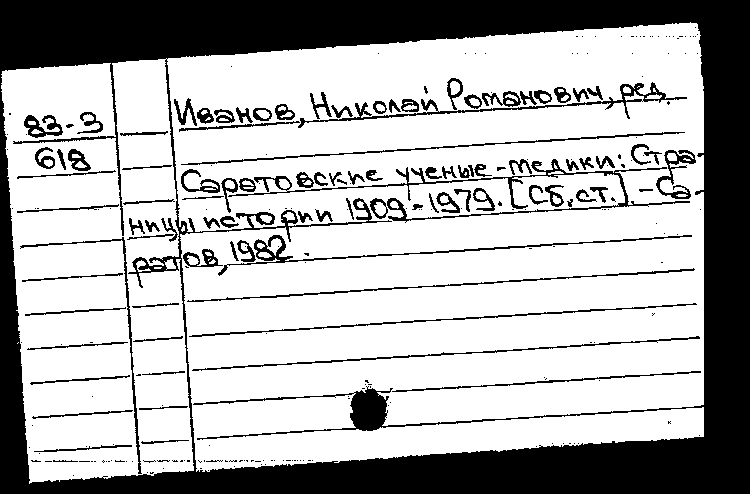 83-3
618
Иванов, Николай Романович, ред.
Саратовские ученые-медики: Стра-
ницы истории 1909-1979. [Сб. ст.]. - Са-
ратов, 1982.